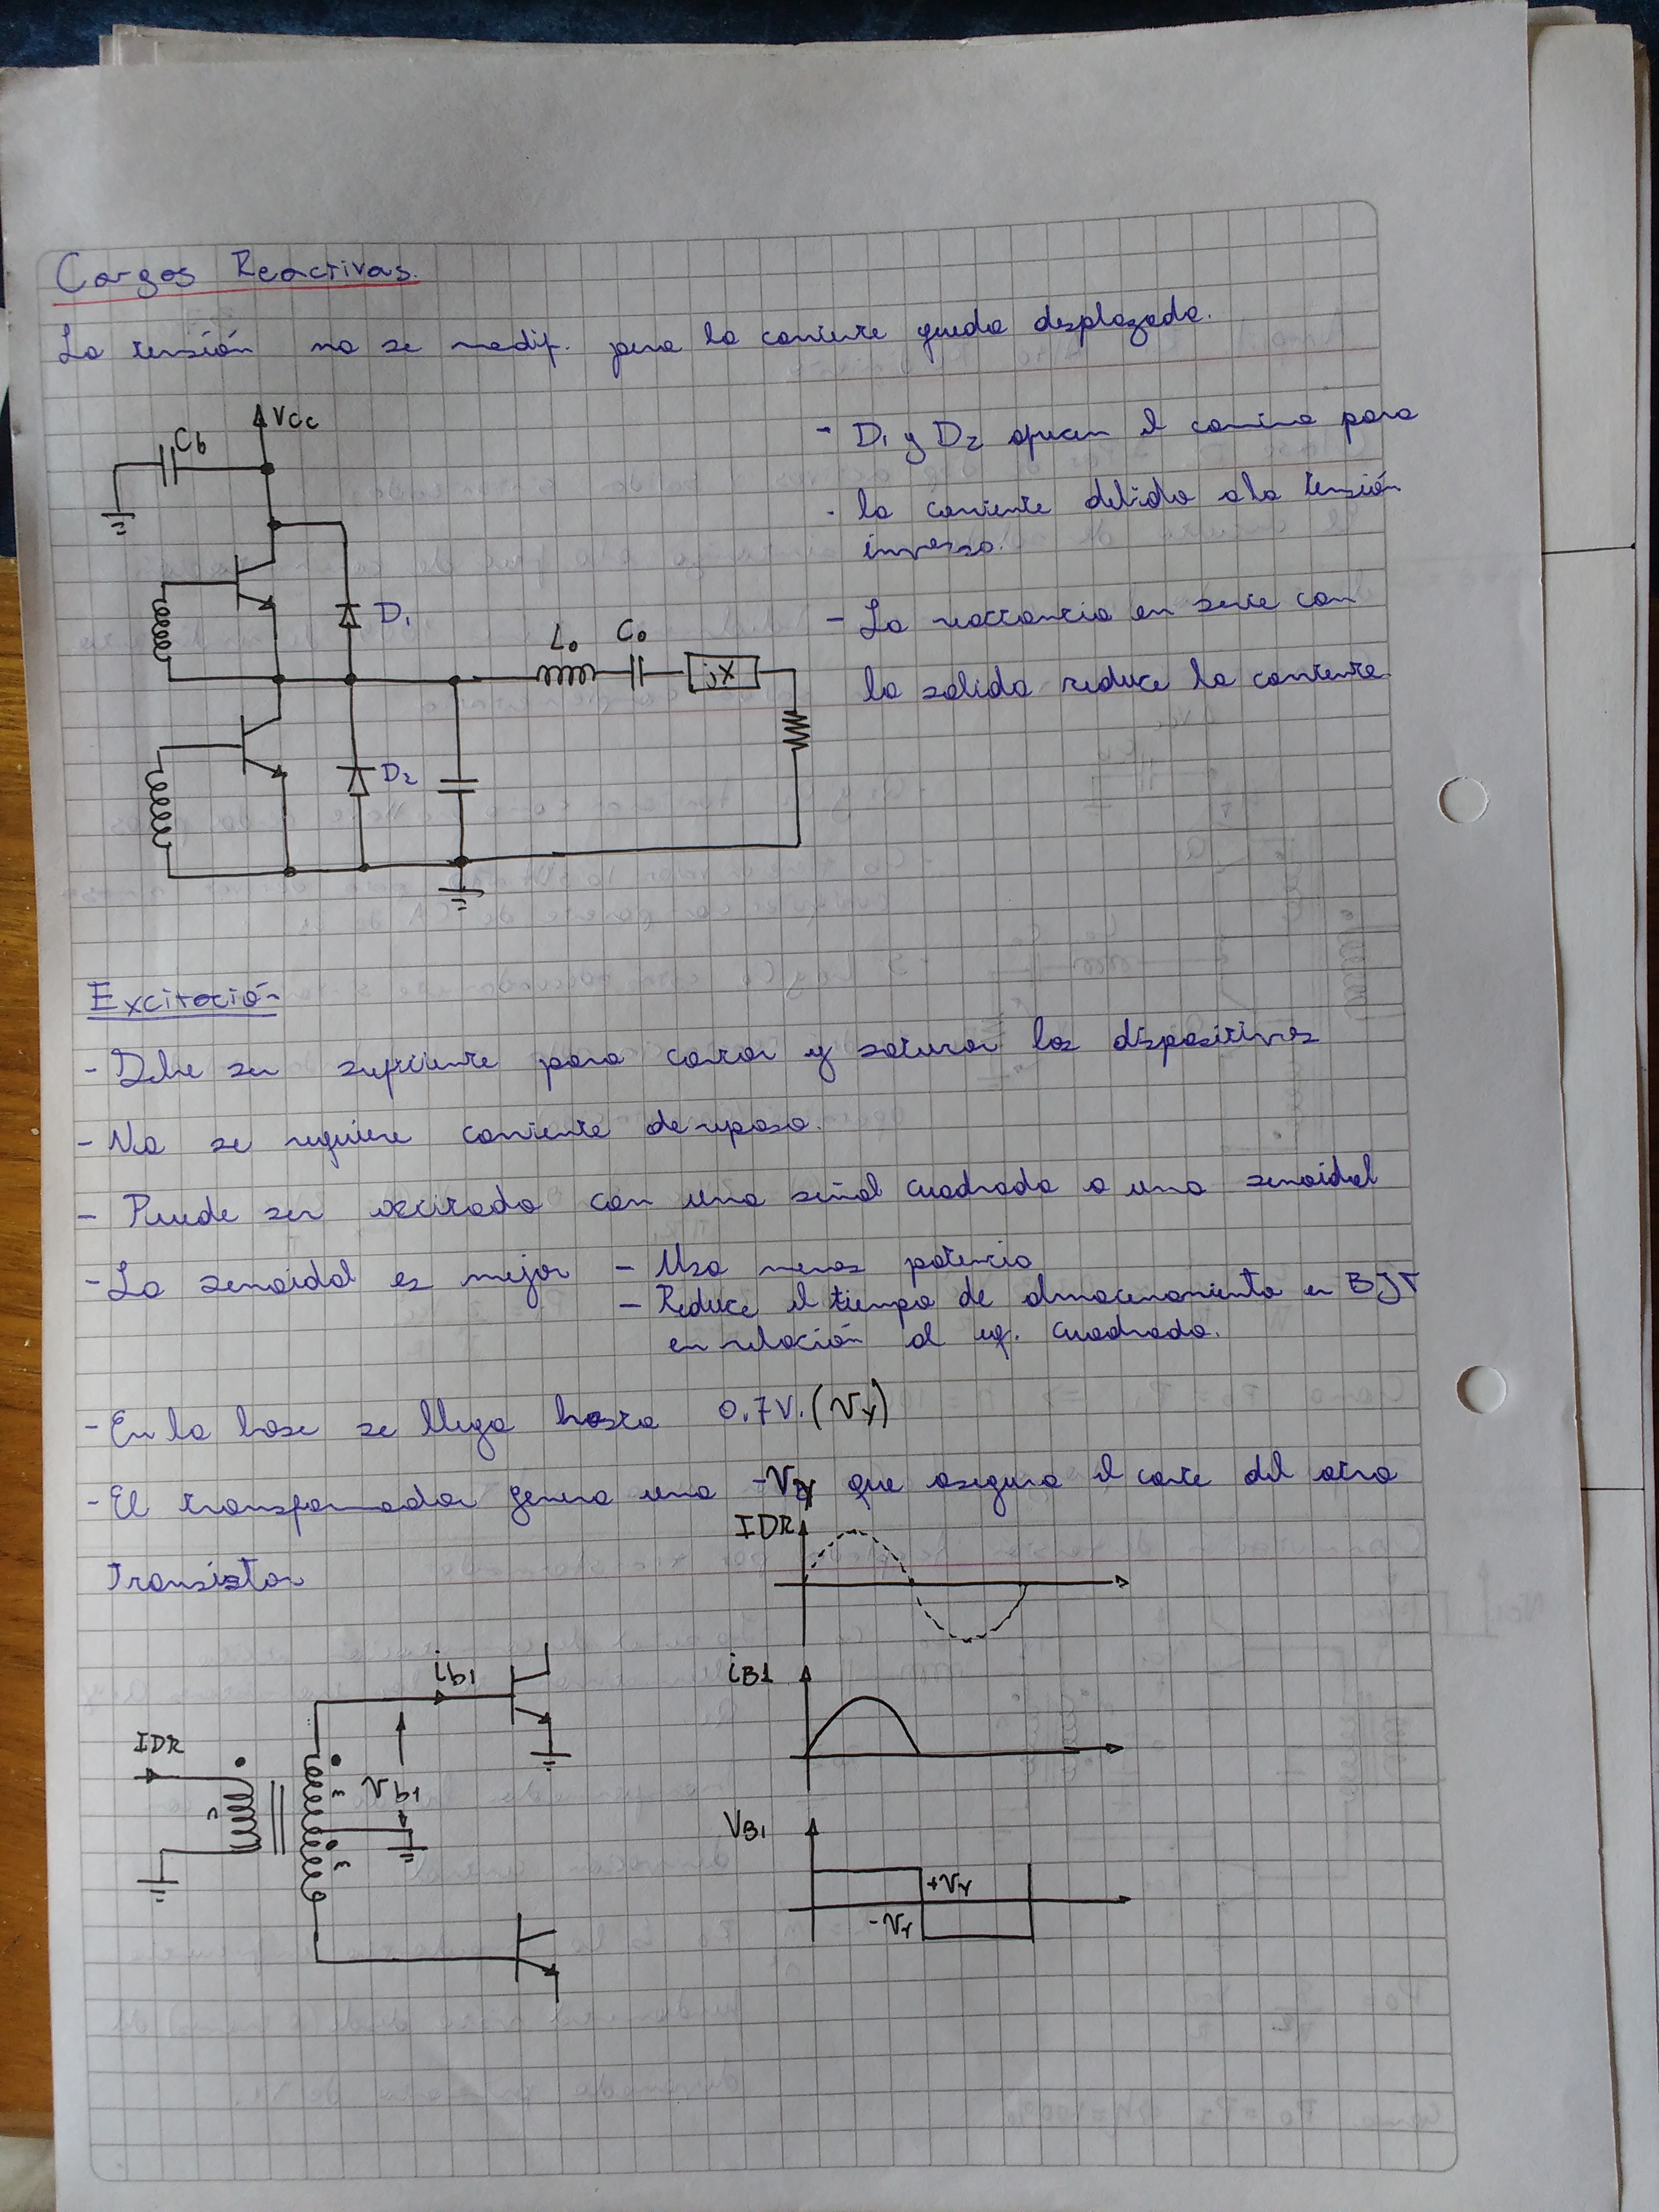 Cargas Reactivas.
La tensión no se modif. pero la corriente queda desplazada.
Vcc
Cb
- D1 y D2 ofrecen el camino para
- la corriente debido a la tensión
inversa.
D1
- La reactancia en serie con
L0 C0
jX
la salida reduce la corriente
D2
Excitación
- Debe ser suficiente para cortar y saturar los dispositivos
- No se requiere corriente de reposo.
- Puede ser excitado con una señal cuadrada o una senoidal
- La senoidal es mejor - Usa menos potencia
- Reduce el tiempo de almacenamiento en BJT
en relación al eq. cuadrada.
- En la base se llega hasta 0.7V. (Vγ)
- El transformador genera una -Vγ que asegura el corte del otro
Transistor
IDR
ib1
iB1
IDR
Vb1
n
m
m
VB1
+Vγ
-Vγ